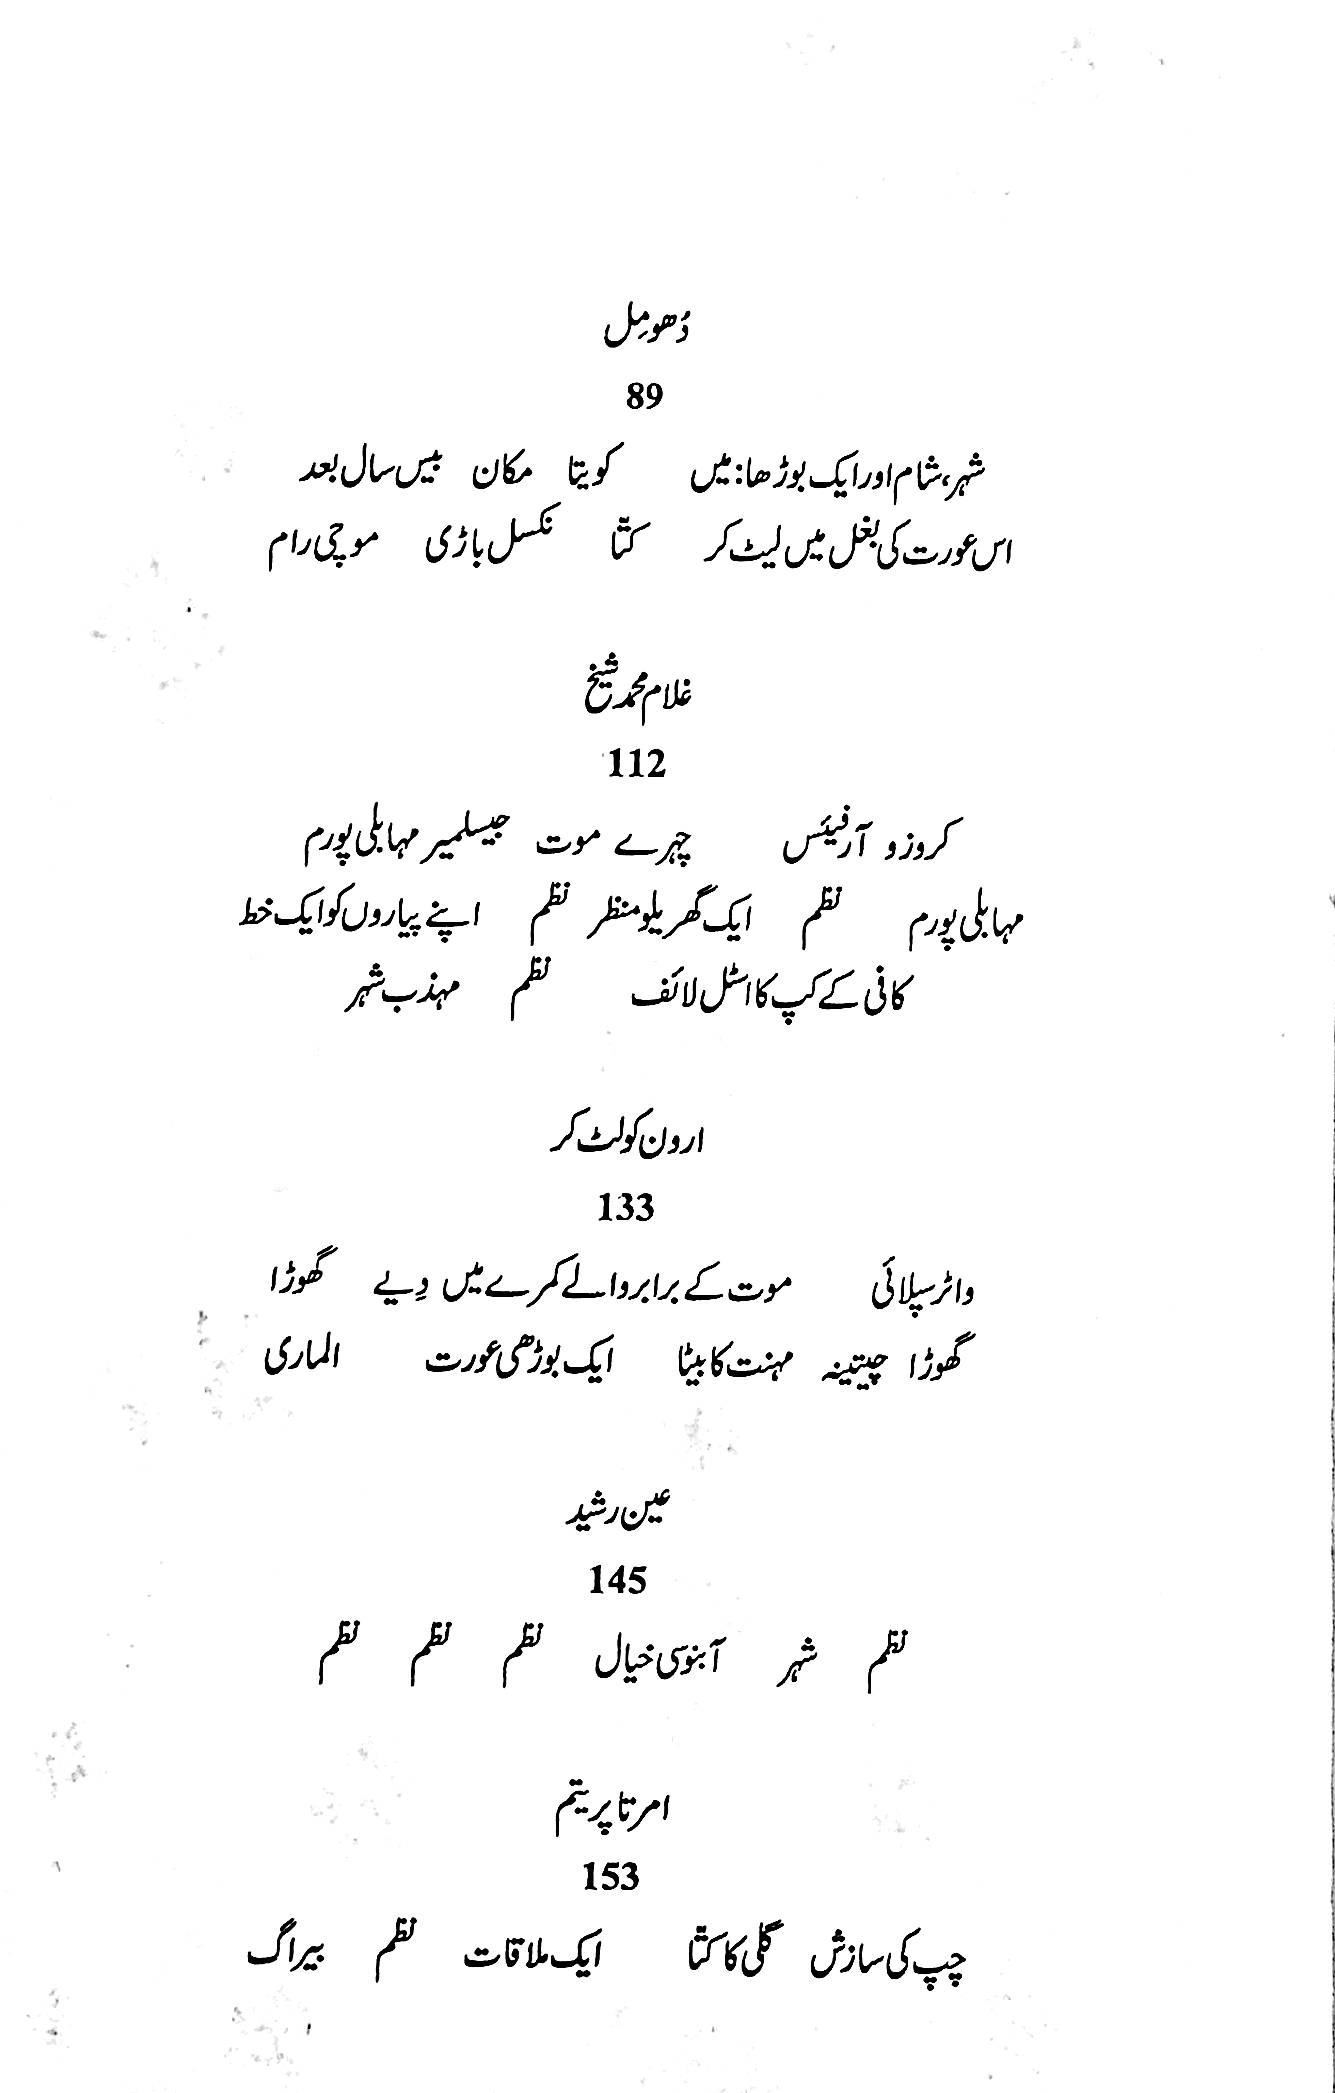 دُھومِل
89
شہر، شام اور ایک بوڑھا: میں کویتا مکان بیس سال بعد
اس عورت کی بغل میں لیٹ کر کتّا نکسل باڑی موچی رام
غلام محمد شیخ
112
کروزو آرفیئس چہرے موت جیسلمیر مہابلی پورم
مہابلی پورم نظم ایک گھریلو منظر نظم اپنے پیاروں کو ایک خط
کافی کے کپ کا اسٹل لائف نظم مہذب شہر
ارون کولٹ کر
133
واٹر سپلائی موت کے برابر والے کمرے میں دِیے گھوڑا
گھوڑا چیتینہ مہنت کا بیٹا ایک بوڑھی عورت الماری
عین رشید
145
نظم شہر آبنوسی خیال نظم نظم نظم
امرتا پریتم
153
چپ کی سازش گلی کا کتّا ایک ملاقات نظم بیراگ